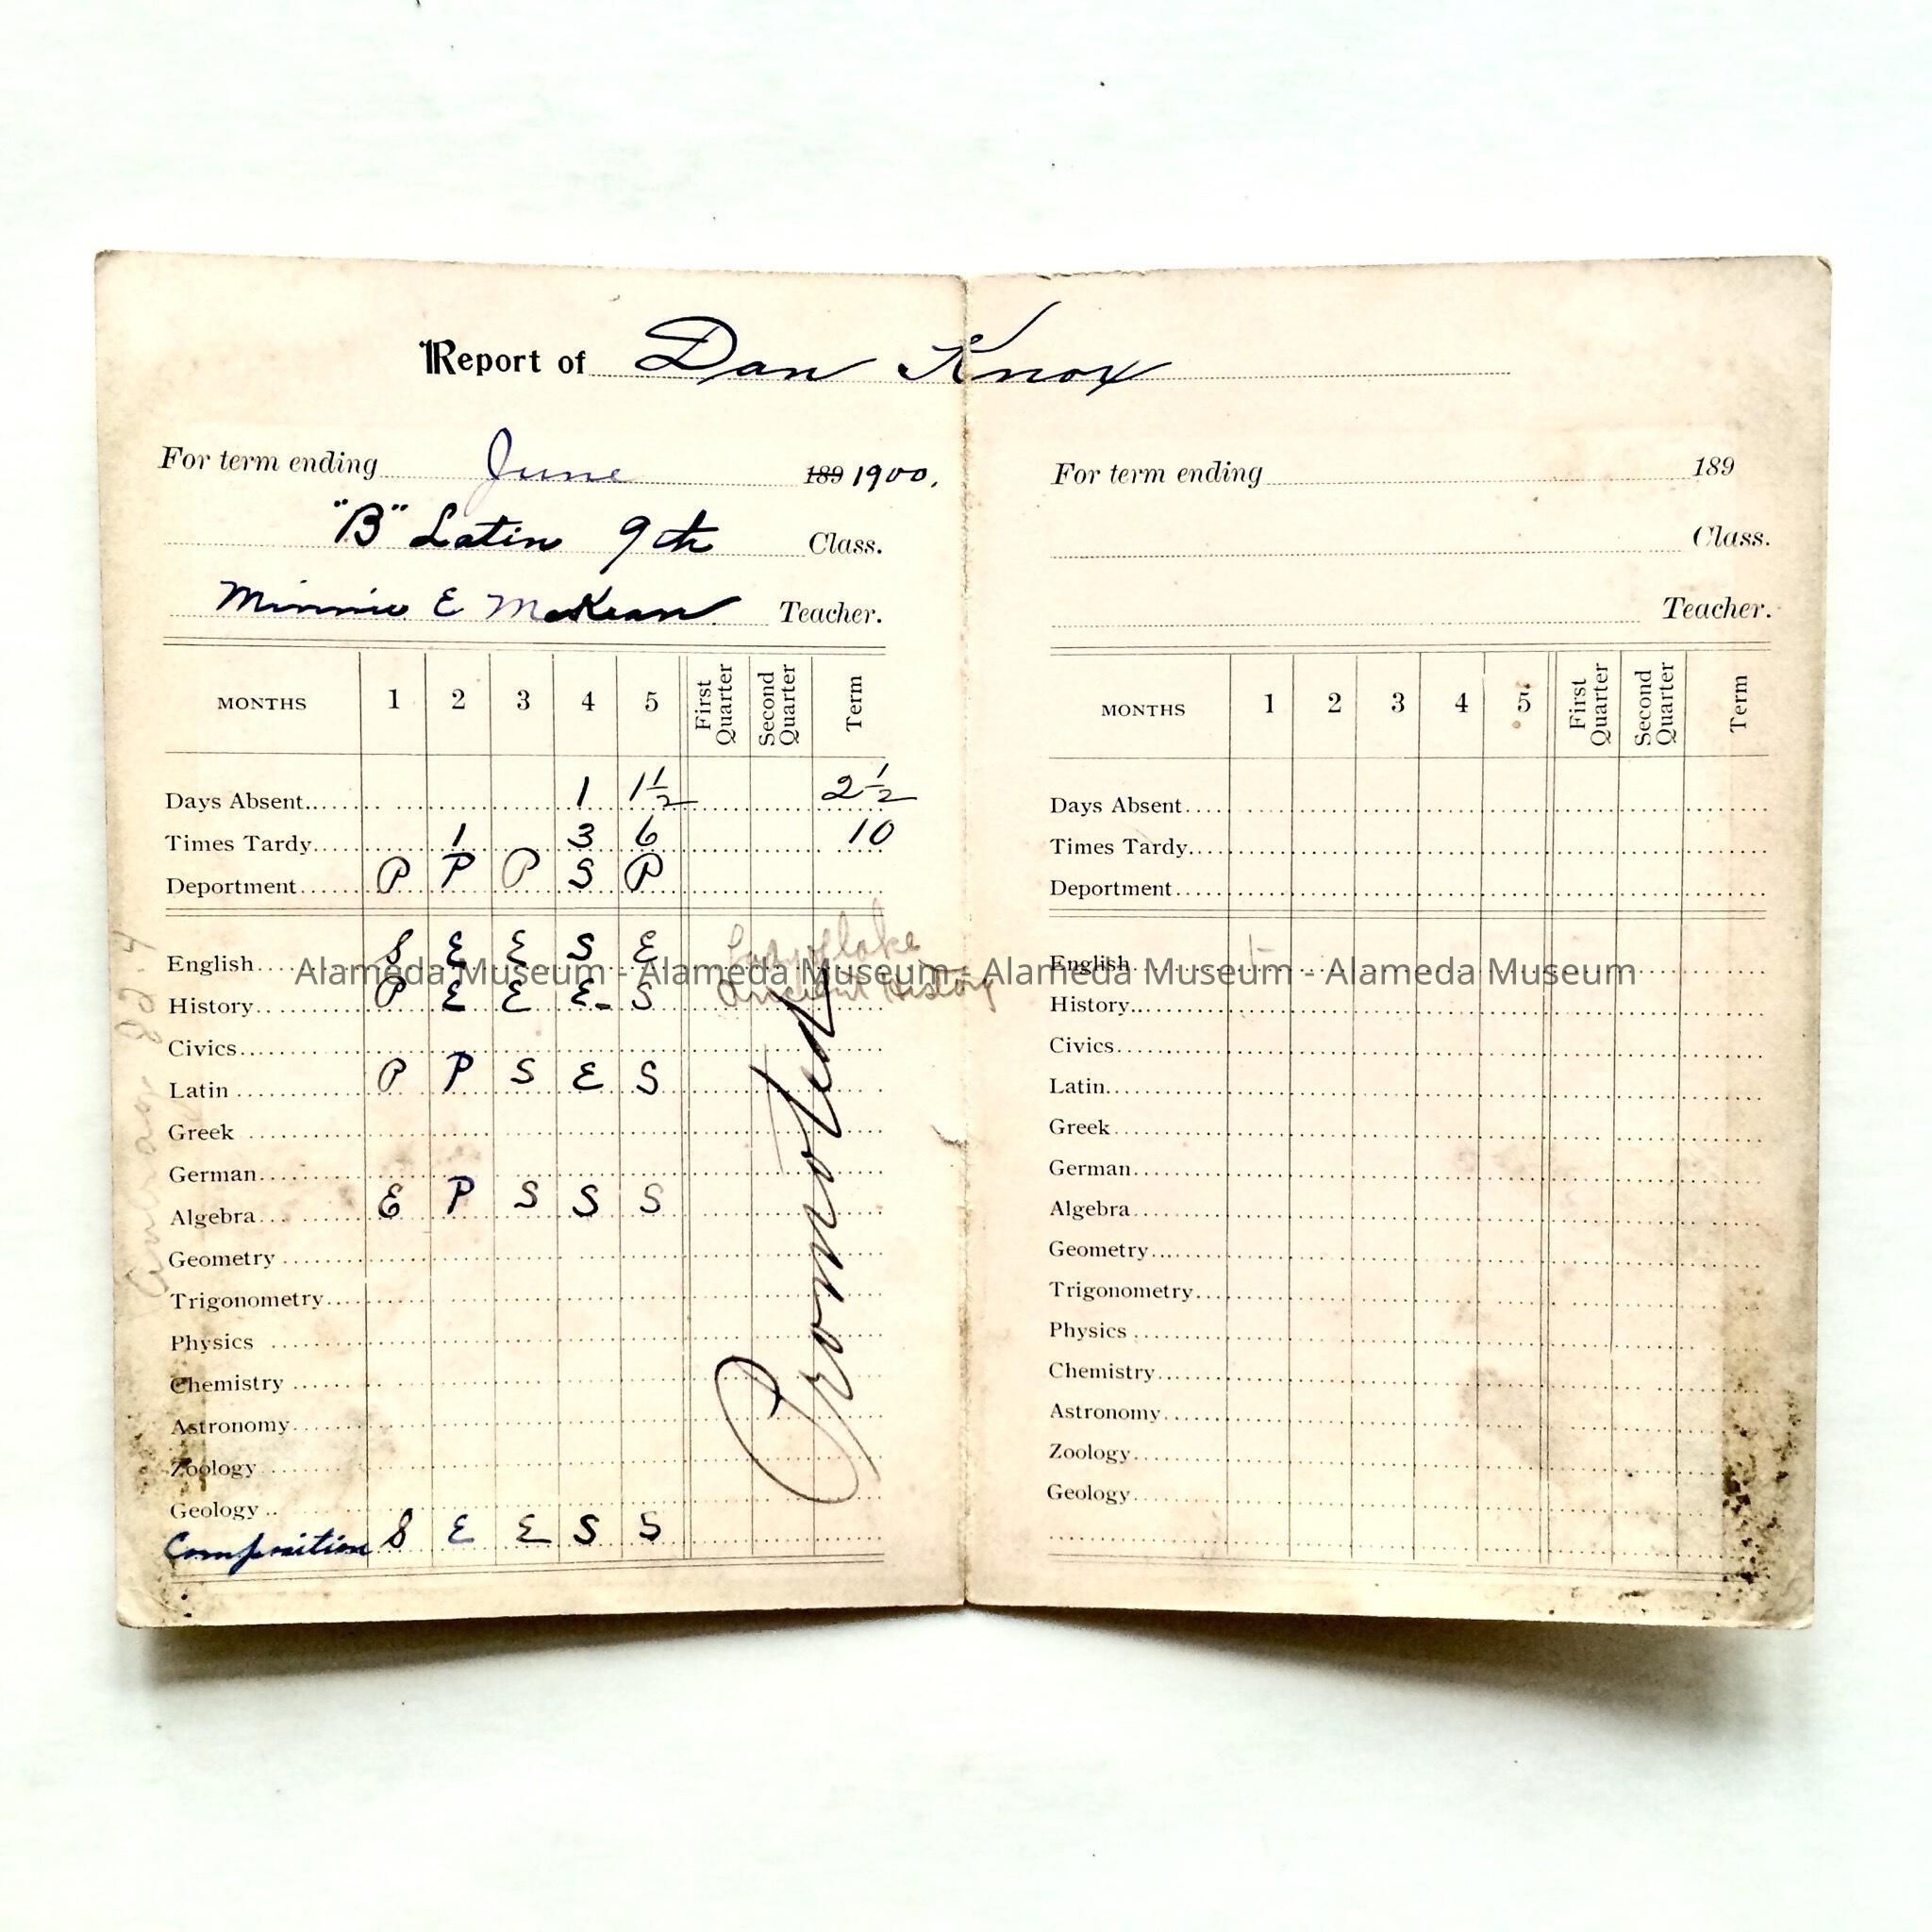 Report of Dan Knox
For term ending June 189 1900.
"B" Latin 9th Class.
Minnie E McKean Teacher.
MONTHS 1 2 3 4 5 First Quarter Second Quarter Term
Days Absent 1 1½ 2½
Times Tardy 1 3 6 10
Deportment P P P S P
English S E E S E
History P E E E- S
Ancient History
Civics
Latin P P S E S
Greek
German
Algebra E P S S S
Geometry
Trigonometry
Physics
Chemistry
Astronomy
Zoology
Geology
Composition S E E S S
Promoted
For term ending 189
Class.
Teacher.
MONTHS 1 2 3 4 5 First Quarter Second Quarter Term
Days Absent
Times Tardy
Deportment
English
History
Civics
Latin
Greek
German
Algebra
Geometry
Trigonometry
Physics
Chemistry
Astronomy
Zoology
Geology
Alameda Museum - Alameda Museum - Alameda Museum - Alameda Museum